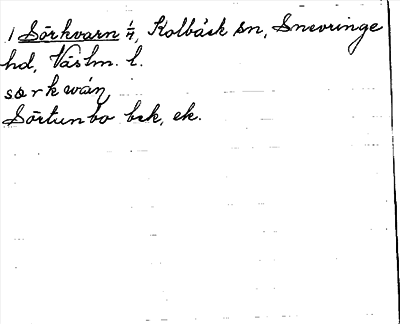 1 Sörkvarn 1/4, Kolbäck sn, Snevringe
hd, Västm. l.
sörkwáṇ
Sörtunbo bck, ek.